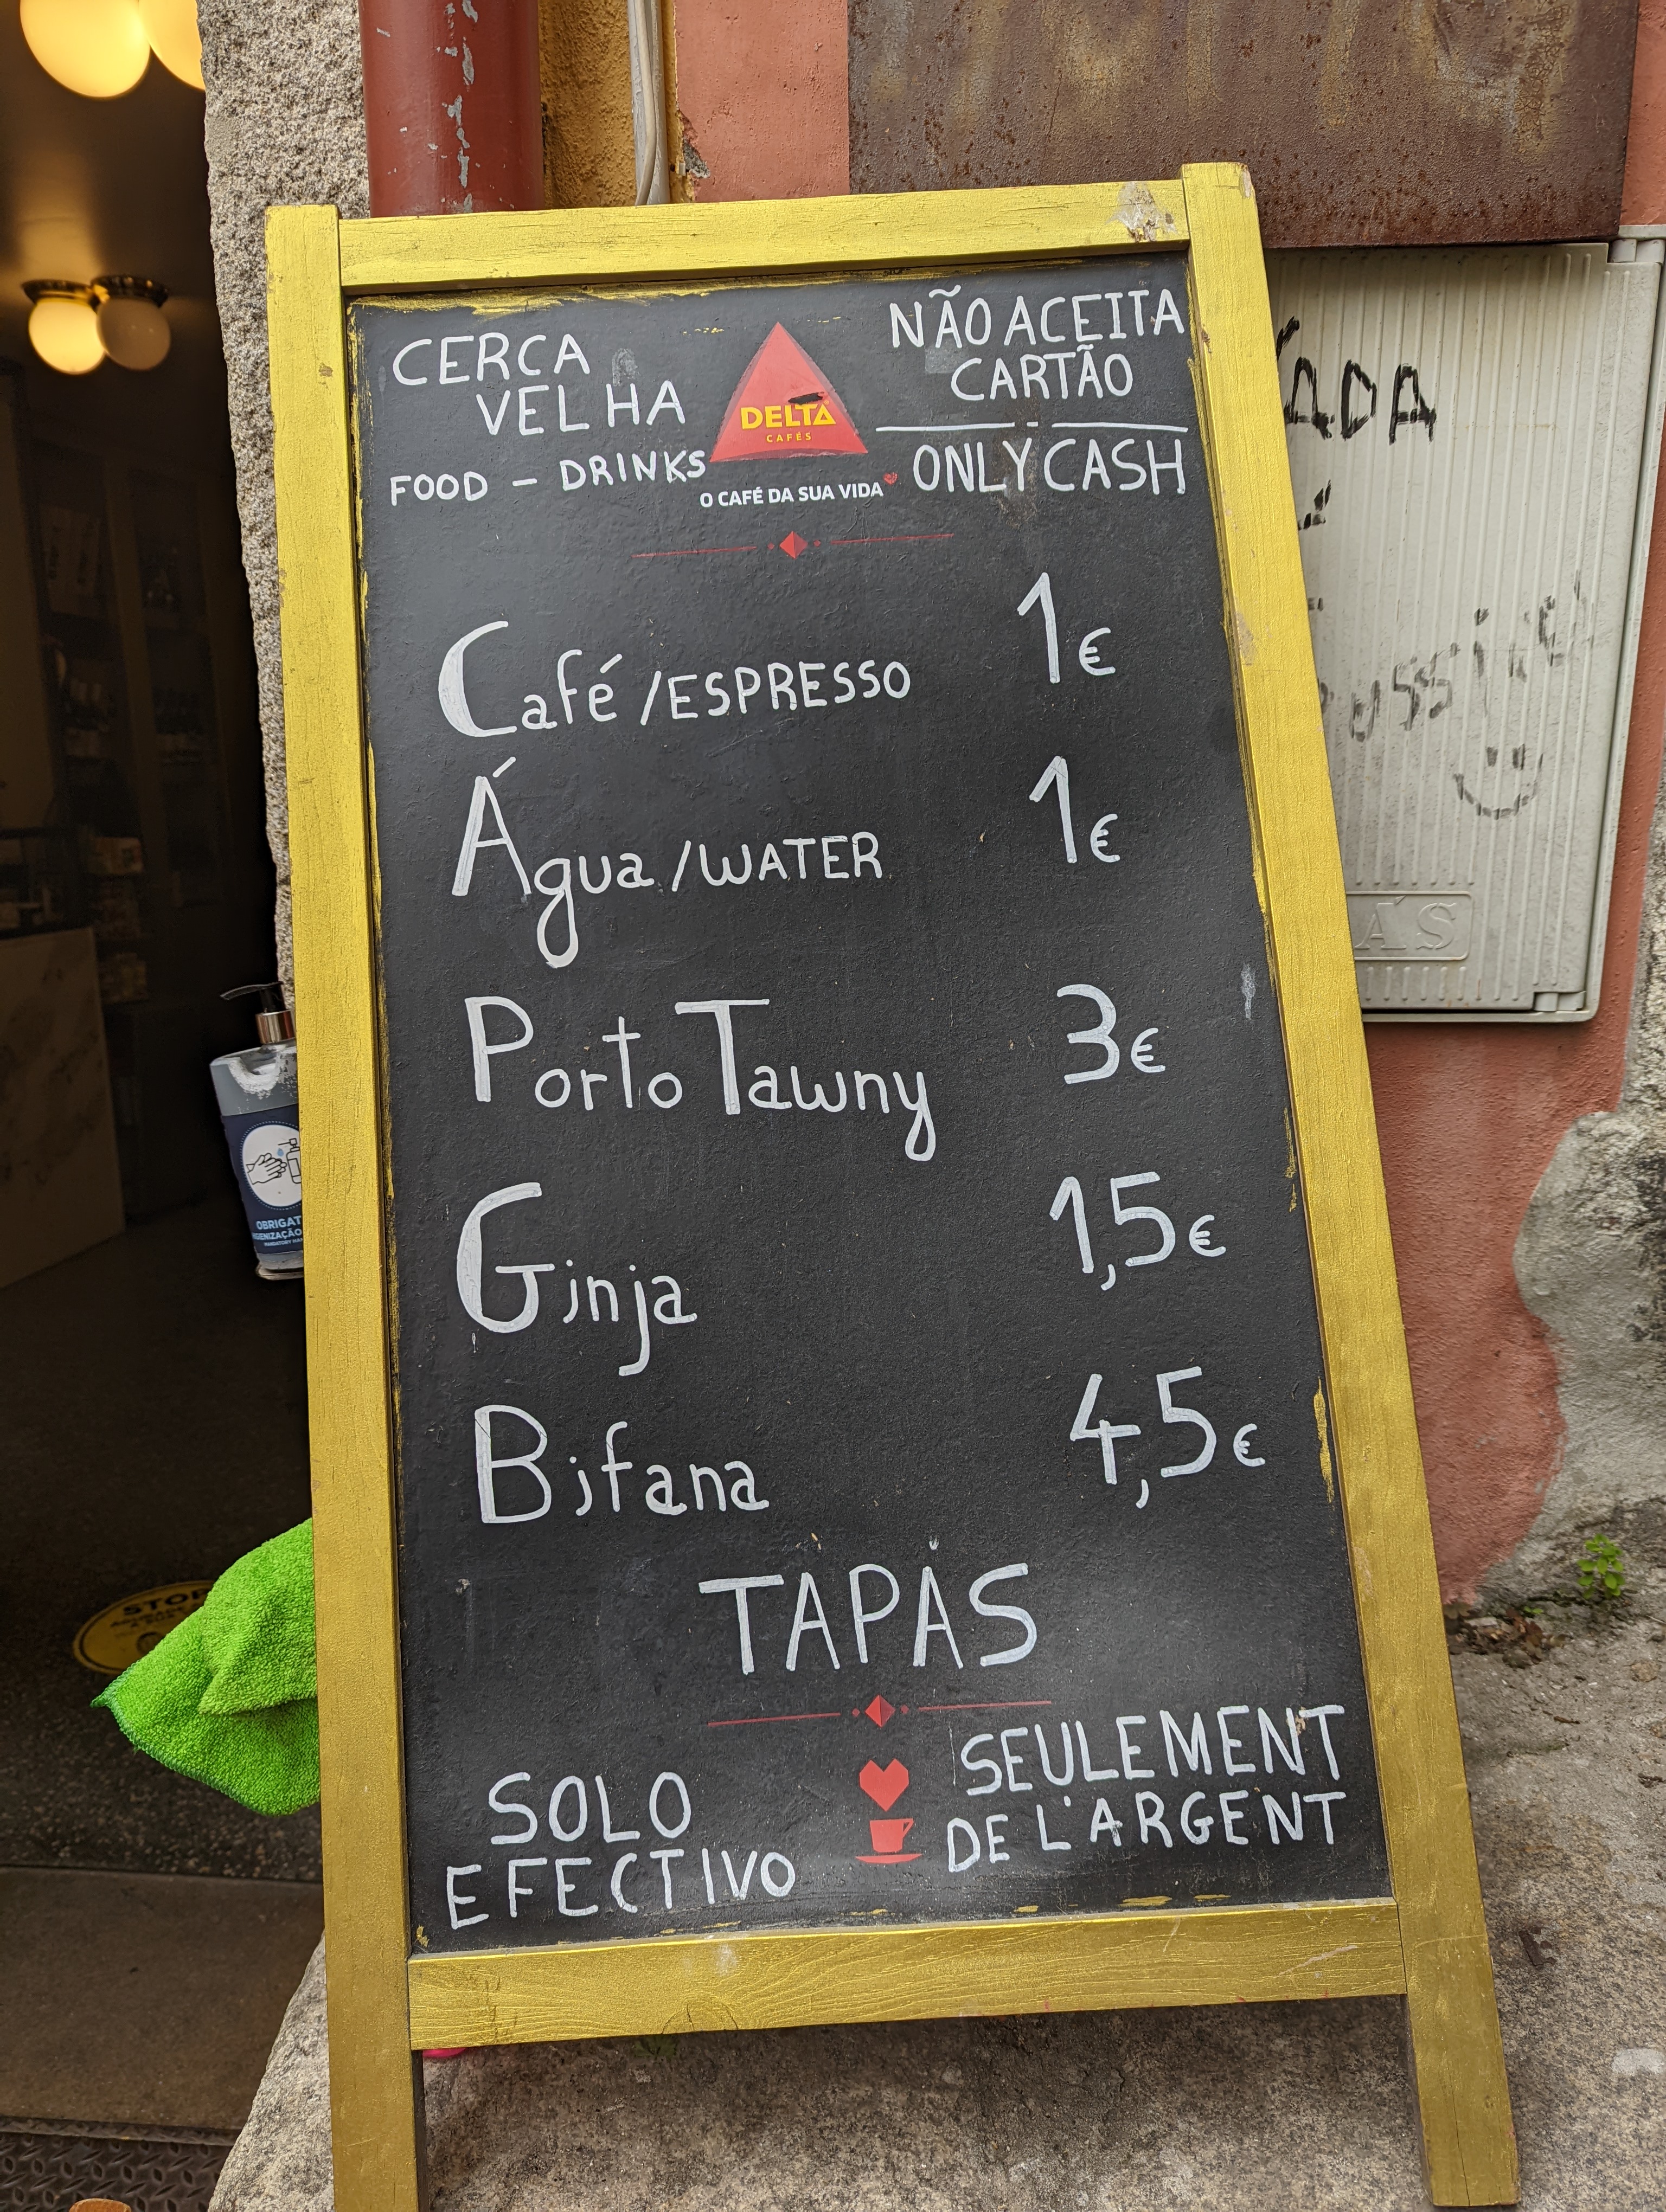 CERCA
VELHA
FOOD - DRINKS
DELTA
CAFÉS
O CAFÉ DA SUA VIDA
NÃO ACEITA
CARTÃO
ONLY CASH
Café /ESPRESSO 1€
Água /WATER 1€
Porto Tawny 3€
Ginja 1,5€
Bifana 4,5€
TAPAS
SOLO
EFECTIVO
SEULEMENT
DE L'ARGENT
ADA
ÁS
OBRIGAT
STOP